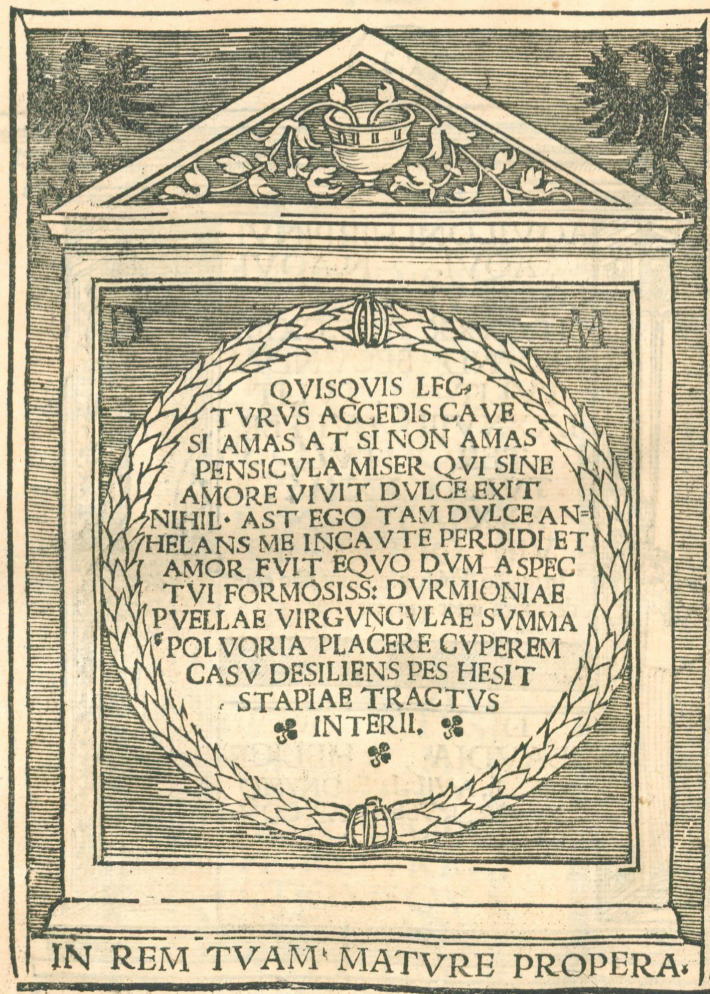 D M
QVISQVIS LEC-
TVRVS ACCEDIS CAVE
SI AMAS AT SI NON AMAS
PENSICVLA MISER QVI SINE
AMORE VIVIT DVLCE EXIT
NIHIL· AST EGO TAM DVLCE AN=
HELANS ME INCAVTE PERDIDI ET
AMOR FVIT EQVO DVM ASPEC
TVI FORMOSISS: DVRMIONIAE
PVELLAE VIRGVNCVLAE SVMMA
POLVORIA PLACERE CVPEREM
CASV DESILIENS PES HESIT
STAPIAE TRACTVS
INTERII.
IN REM TVAM MATVRE PROPERA.